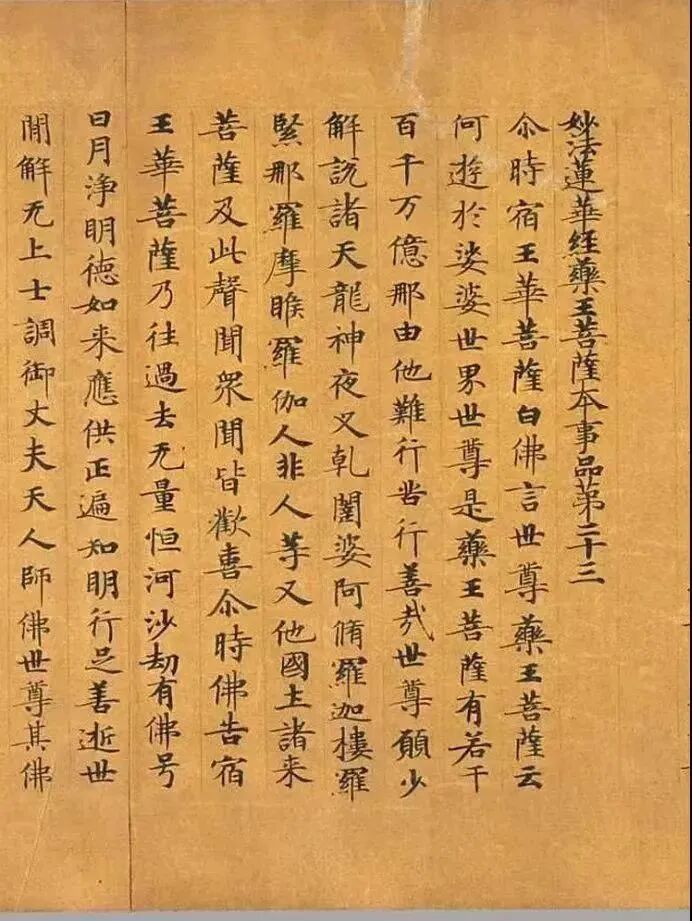 妙法蓮華經藥王菩薩本事品第二十三
尒時宿王華菩薩白佛言世尊藥王菩薩云
何遊於娑婆世界世尊是藥王菩薩有若干
百千万億那由他難行苦行善哉世尊願少
解說諸天龍神夜叉乹闥婆阿脩羅迦樓羅
緊那羅摩睺羅伽人非人等又他國土諸来
菩薩及此聲聞衆聞皆歡喜尒時佛告宿
王華菩薩乃往過去无量恒河沙劫有佛号
日月淨明德如来應供正遍知明行足善逝世
間解无上士調御丈夫天人師佛世尊其佛